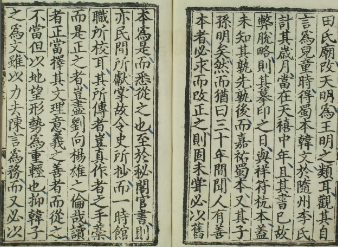 田氏廟改天明為王明之類耳觀其自
言為兒童時得蜀本韓文於隨州李氏
計其歲月當在天禧中年且其書已故
弊脫略則其摹印之日與祥符杭本蓋
未知其孰先孰後而嘉祐蜀本又其子
孫明矣然而猶曰三十年間聞人有善
本者必求而改正之則固未嘗必以舊
本為是而悉從之也至於祕閣官書則
亦民間所獻掌故令史所抄而一時館
職所校耳其所傳者豈真作者之手藁
而是正之者豈盡劉向揚雄之倫哉讀
者正當擇其文理意義之善者而從之
不當但以地望形勢為重輕也抑韓子
之為文雖以力去陳言為務而又必以